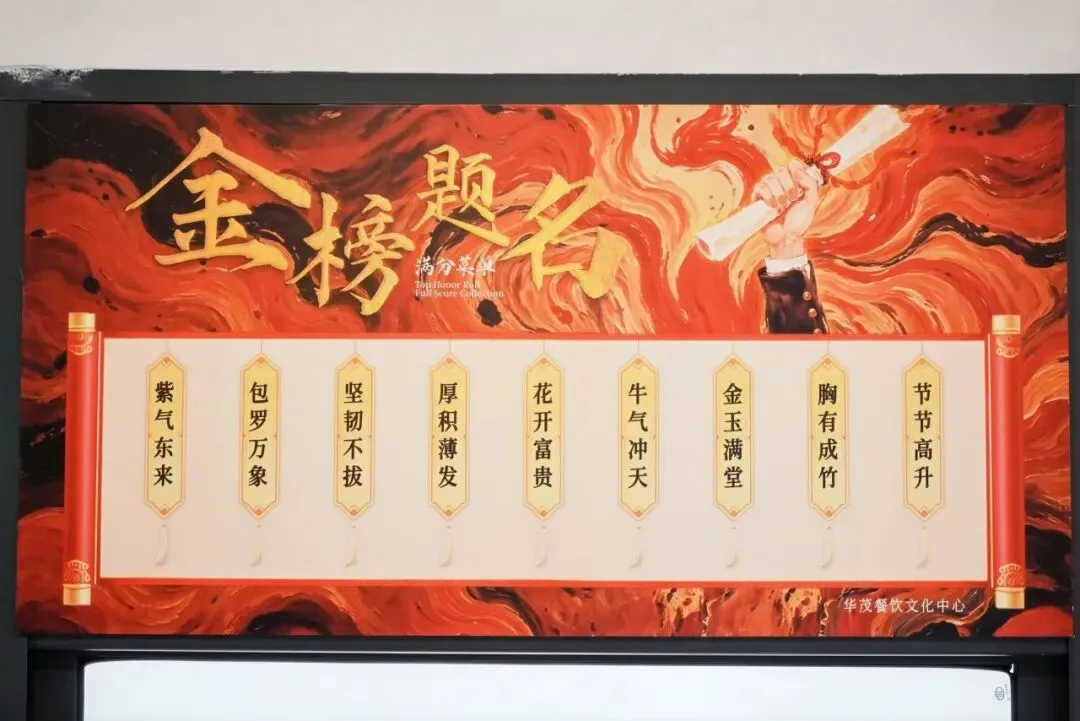 金榜题名
满分菜单
Top Honor Roll
Full Score Collection
紫气东来
包罗万象
坚韧不拔
厚积薄发
花开富贵
牛气冲天
金玉满堂
胸有成竹
节节高升
华茂餐饮文化中心